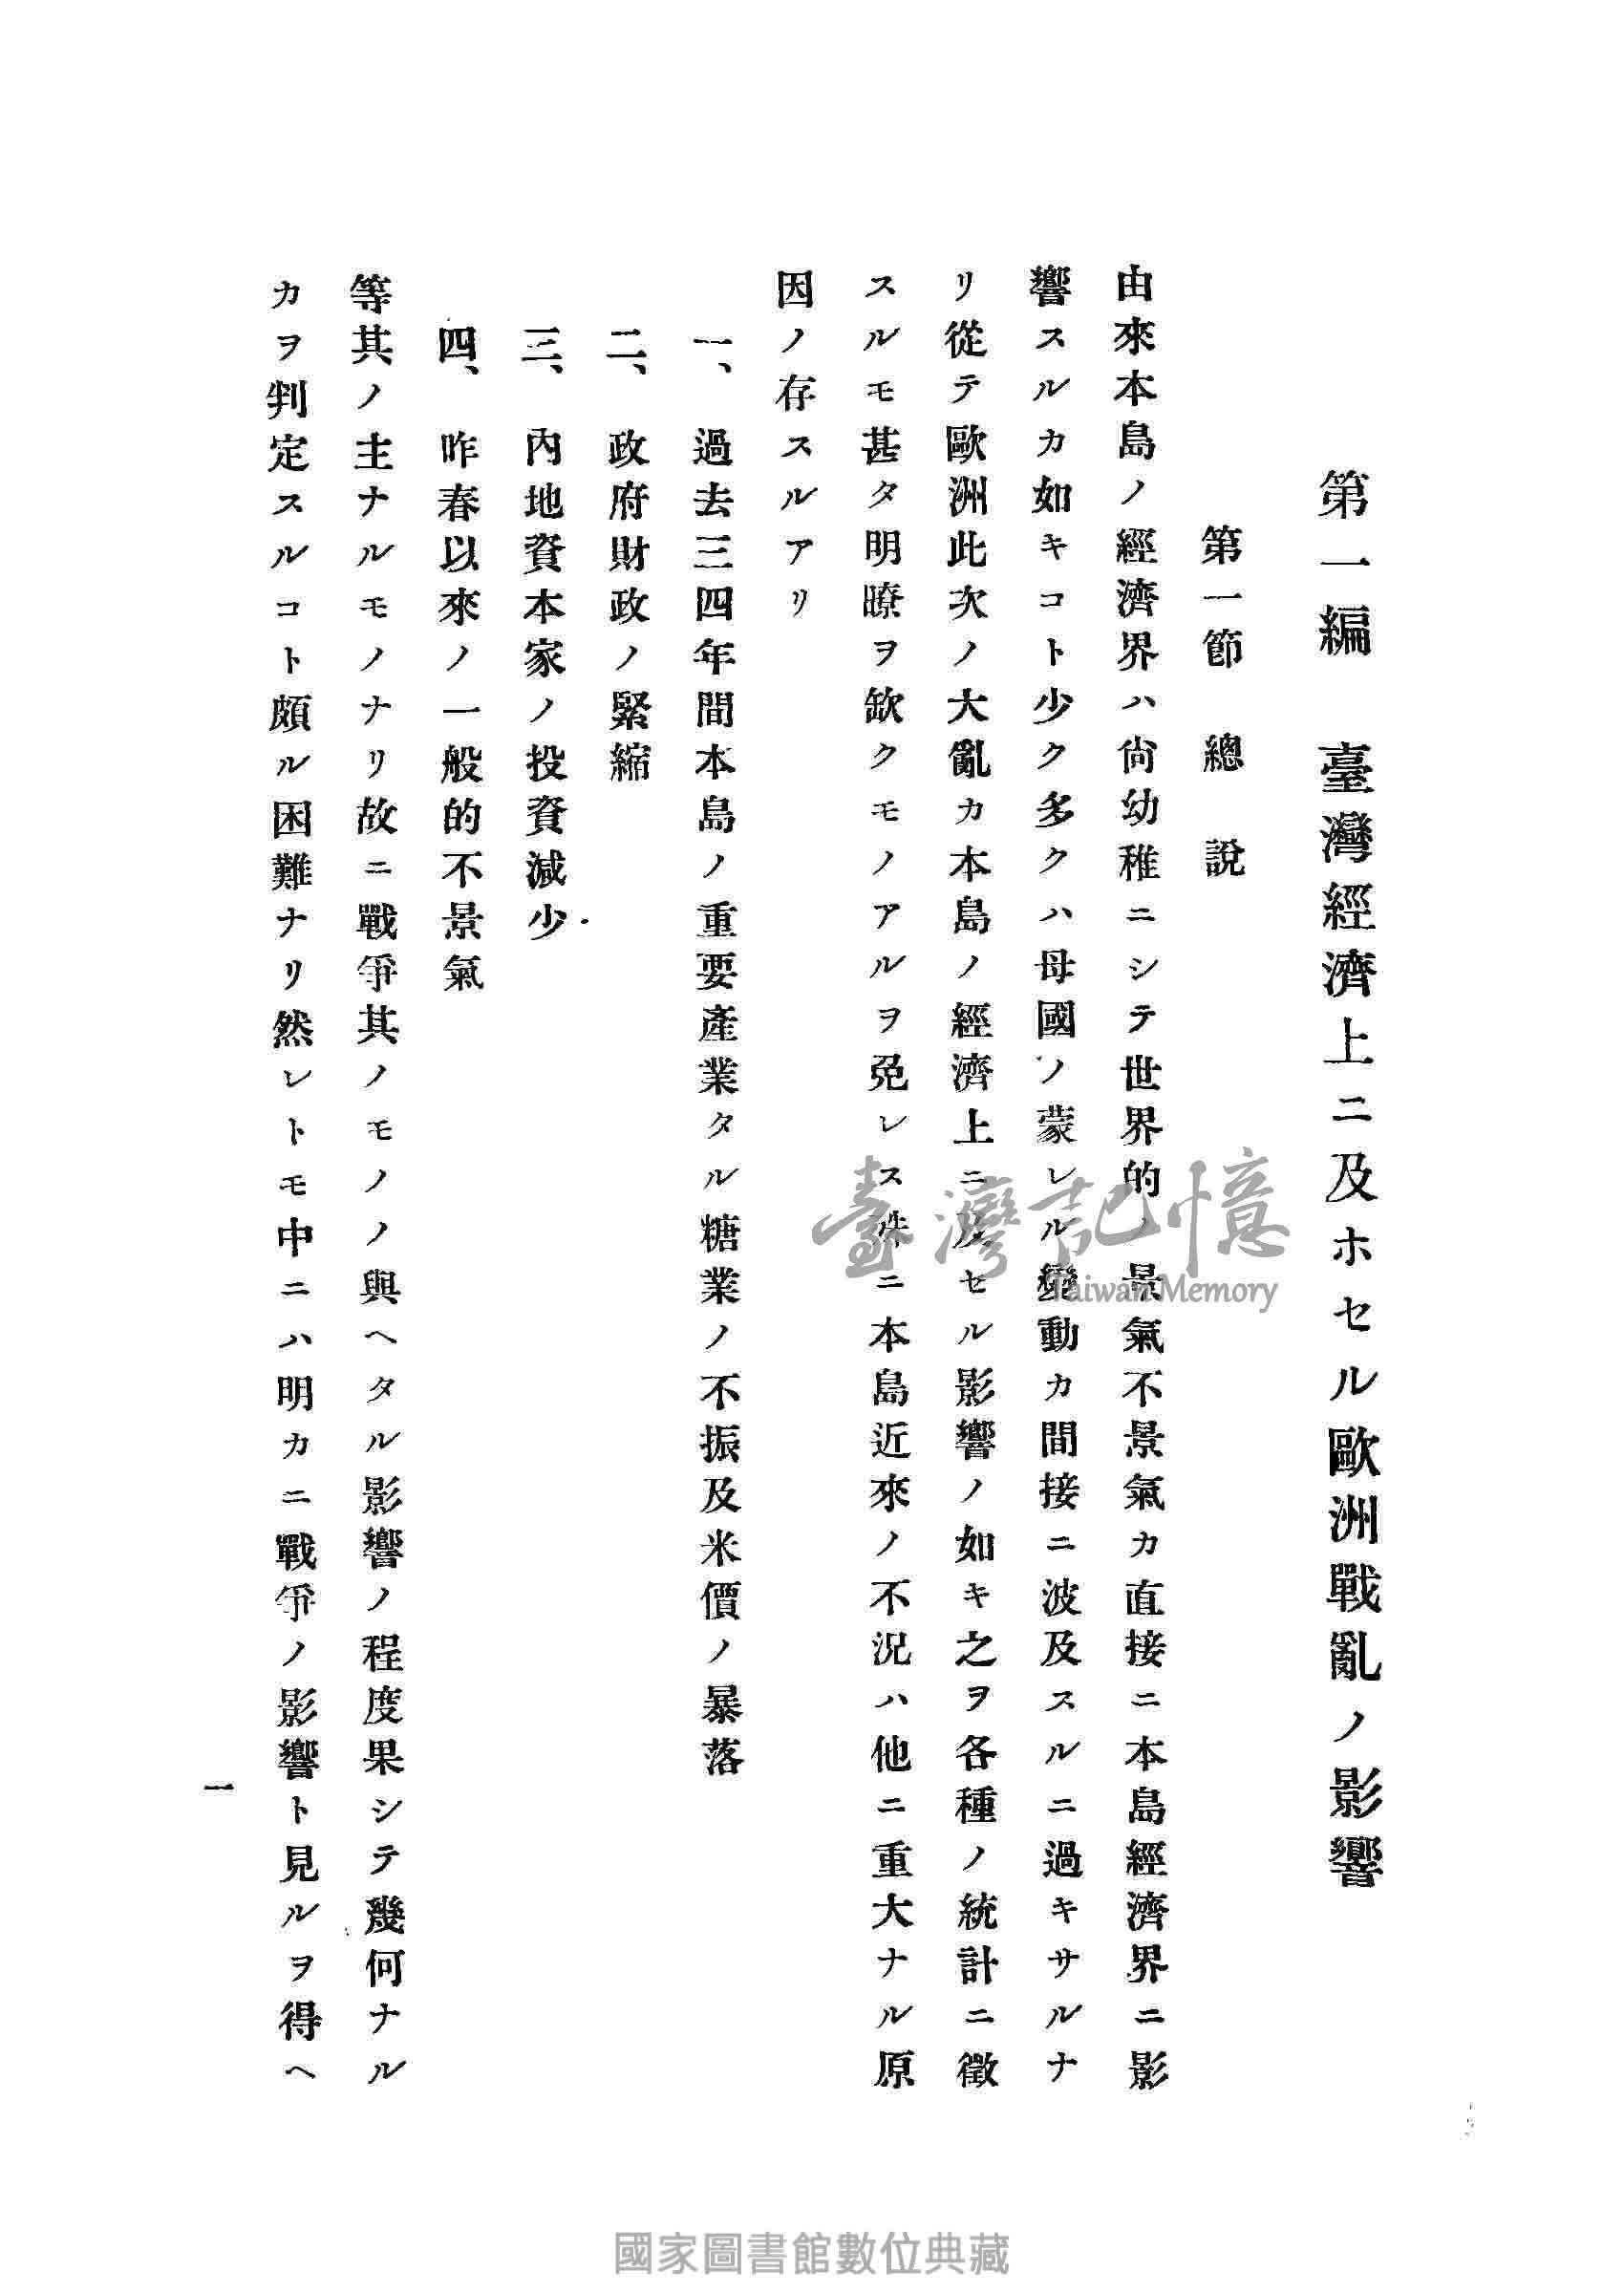 第一編　臺灣經濟上ニ及ホセル歐洲戰亂ノ影響
第一節　總說
由來本島ノ經濟界ハ尙幼稚ニシテ世界的ノ景氣不景氣カ直接ニ本島經濟界ニ影
響スルカ如キコト少ク多クハ母國ノ蒙レル變動カ間接ニ波及スルニ過キサルナ
リ從テ歐洲此次ノ大亂カ本島ノ經濟上ニ及セル影響ノ如キ之ヲ各種ノ統計ニ徵
スルモ甚タ明瞭ヲ缺クモノアルヲ免レス殊ニ本島近來ノ不況ハ他ニ重大ナル原
因ノ存スルアリ
一、過去三四年間本島ノ重要產業タル糖業ノ不振及米價ノ暴落
二、政府財政ノ緊縮
三、內地資本家ノ投資減少
四、昨春以來ノ一般的不景氣
等其ノ主ナルモノナリ故ニ戰爭其ノモノノ與ヘタル影響ノ程度果シテ幾何ナル
カヲ判定スルコト頗ル困難ナリ然レトモ中ニハ明カニ戰爭ノ影響ト見ルヲ得ヘ
一
臺灣記憶
Taiwan Memory
國家圖書館數位典藏